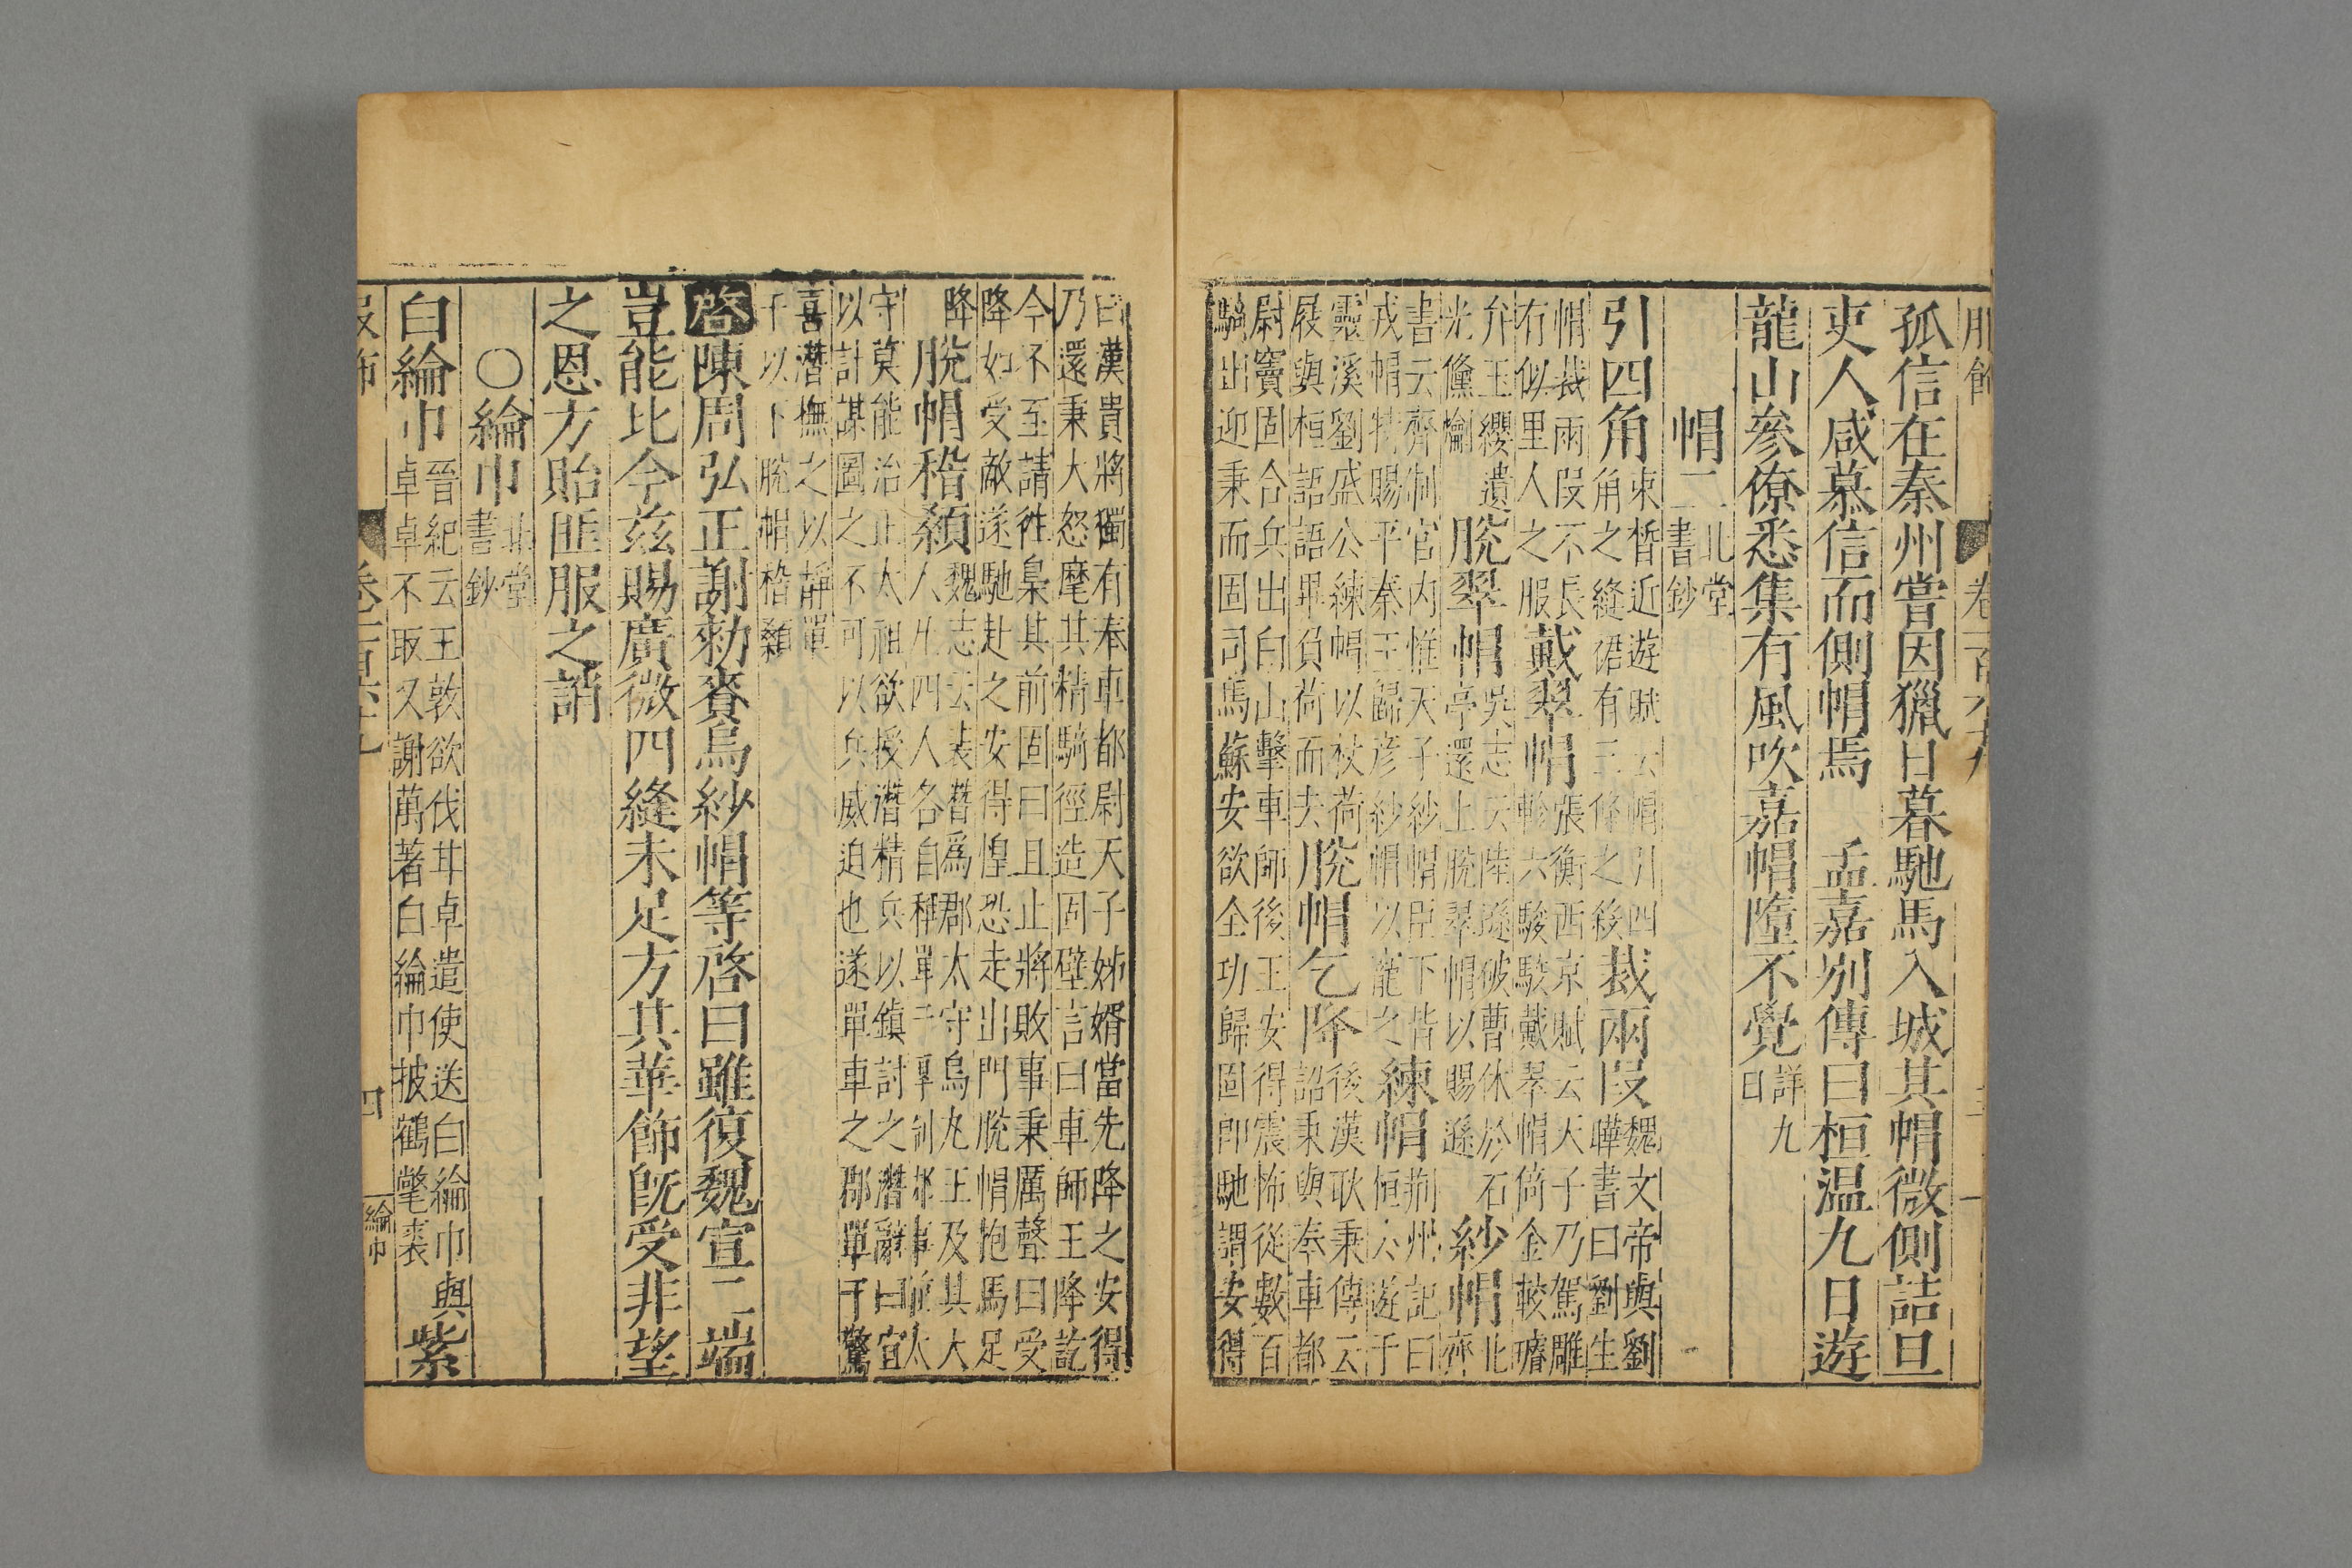 服飾 卷一百六十九 三
孤信在秦州嘗因獵日暮馳馬入城其帽微側詰旦
吏人咸慕信而側帽焉 孟嘉別傳曰桓温九日遊
龍山參僚悉集有風吹嘉帽墮不覺詳九日
帽二北堂書鈔
引四角束晳近遊賦云帽引四角之縫裙有三條之殺裁兩段魏文帝與劉曄書曰劉生
帽裁兩段不長有似里人之服戴翠帽張衡西京賦云天子乃駕雕軫六駿駮戴翠帽倚金較璿
弁玉纓遺光儵爚脫翠帽吳志云陸遜破曹休於石亭還上脫翠帽以賜遜紗帽北齊
書云齊制宮內惟天子紗帽臣下皆戎帽特賜平秦王歸彥紗帽以寵之練帽荊州記曰桓六遊于
靈溪劉盛公練帽以杖荷屐與桓語語畢負荷而去脫帽乞降後漢耿秉傳云詔秉與奉車都
尉竇固合兵出白山擊車師後王安得震怖從數百騎出迎秉而固司馬蘇安欲全功歸固卽馳謂安得
曰漢貴將獨有奉車都尉天子姊婿當先降之安得乃還秉大怒麾其精騎徑造固壁言曰車師王降訖
今不至請往梟其前固曰且止將敗事秉厲聲曰受降如受敵遂馳赴之安得惶恐走出門脫帽抱馬足
降脫帽稽顙魏志云裴潛爲郡太守烏丸王及其大人凡四人各自稱單于專制郡事前太
守莫能治正太祖欲授潛精兵以鎮討之潛辭曰宜以計謀圖之不可以兵威迫也遂單車之郡單于驚
喜潛撫之以靜單于以下脫帽稽顙
啓陳周弘正謝勑賚烏紗帽等啓曰雖復魏宣二端
豈能比今兹賜廣微四縫未足方其華飾旣受非望
之恩方貽匪服之誚
○綸巾北堂書鈔
白綸巾晉紀云王敦欲伐甘卓遣使送白綸巾與卓卓不取又謝萬著白綸巾披鶴氅裘紫
服飾 卷一百六十九 四 綸巾